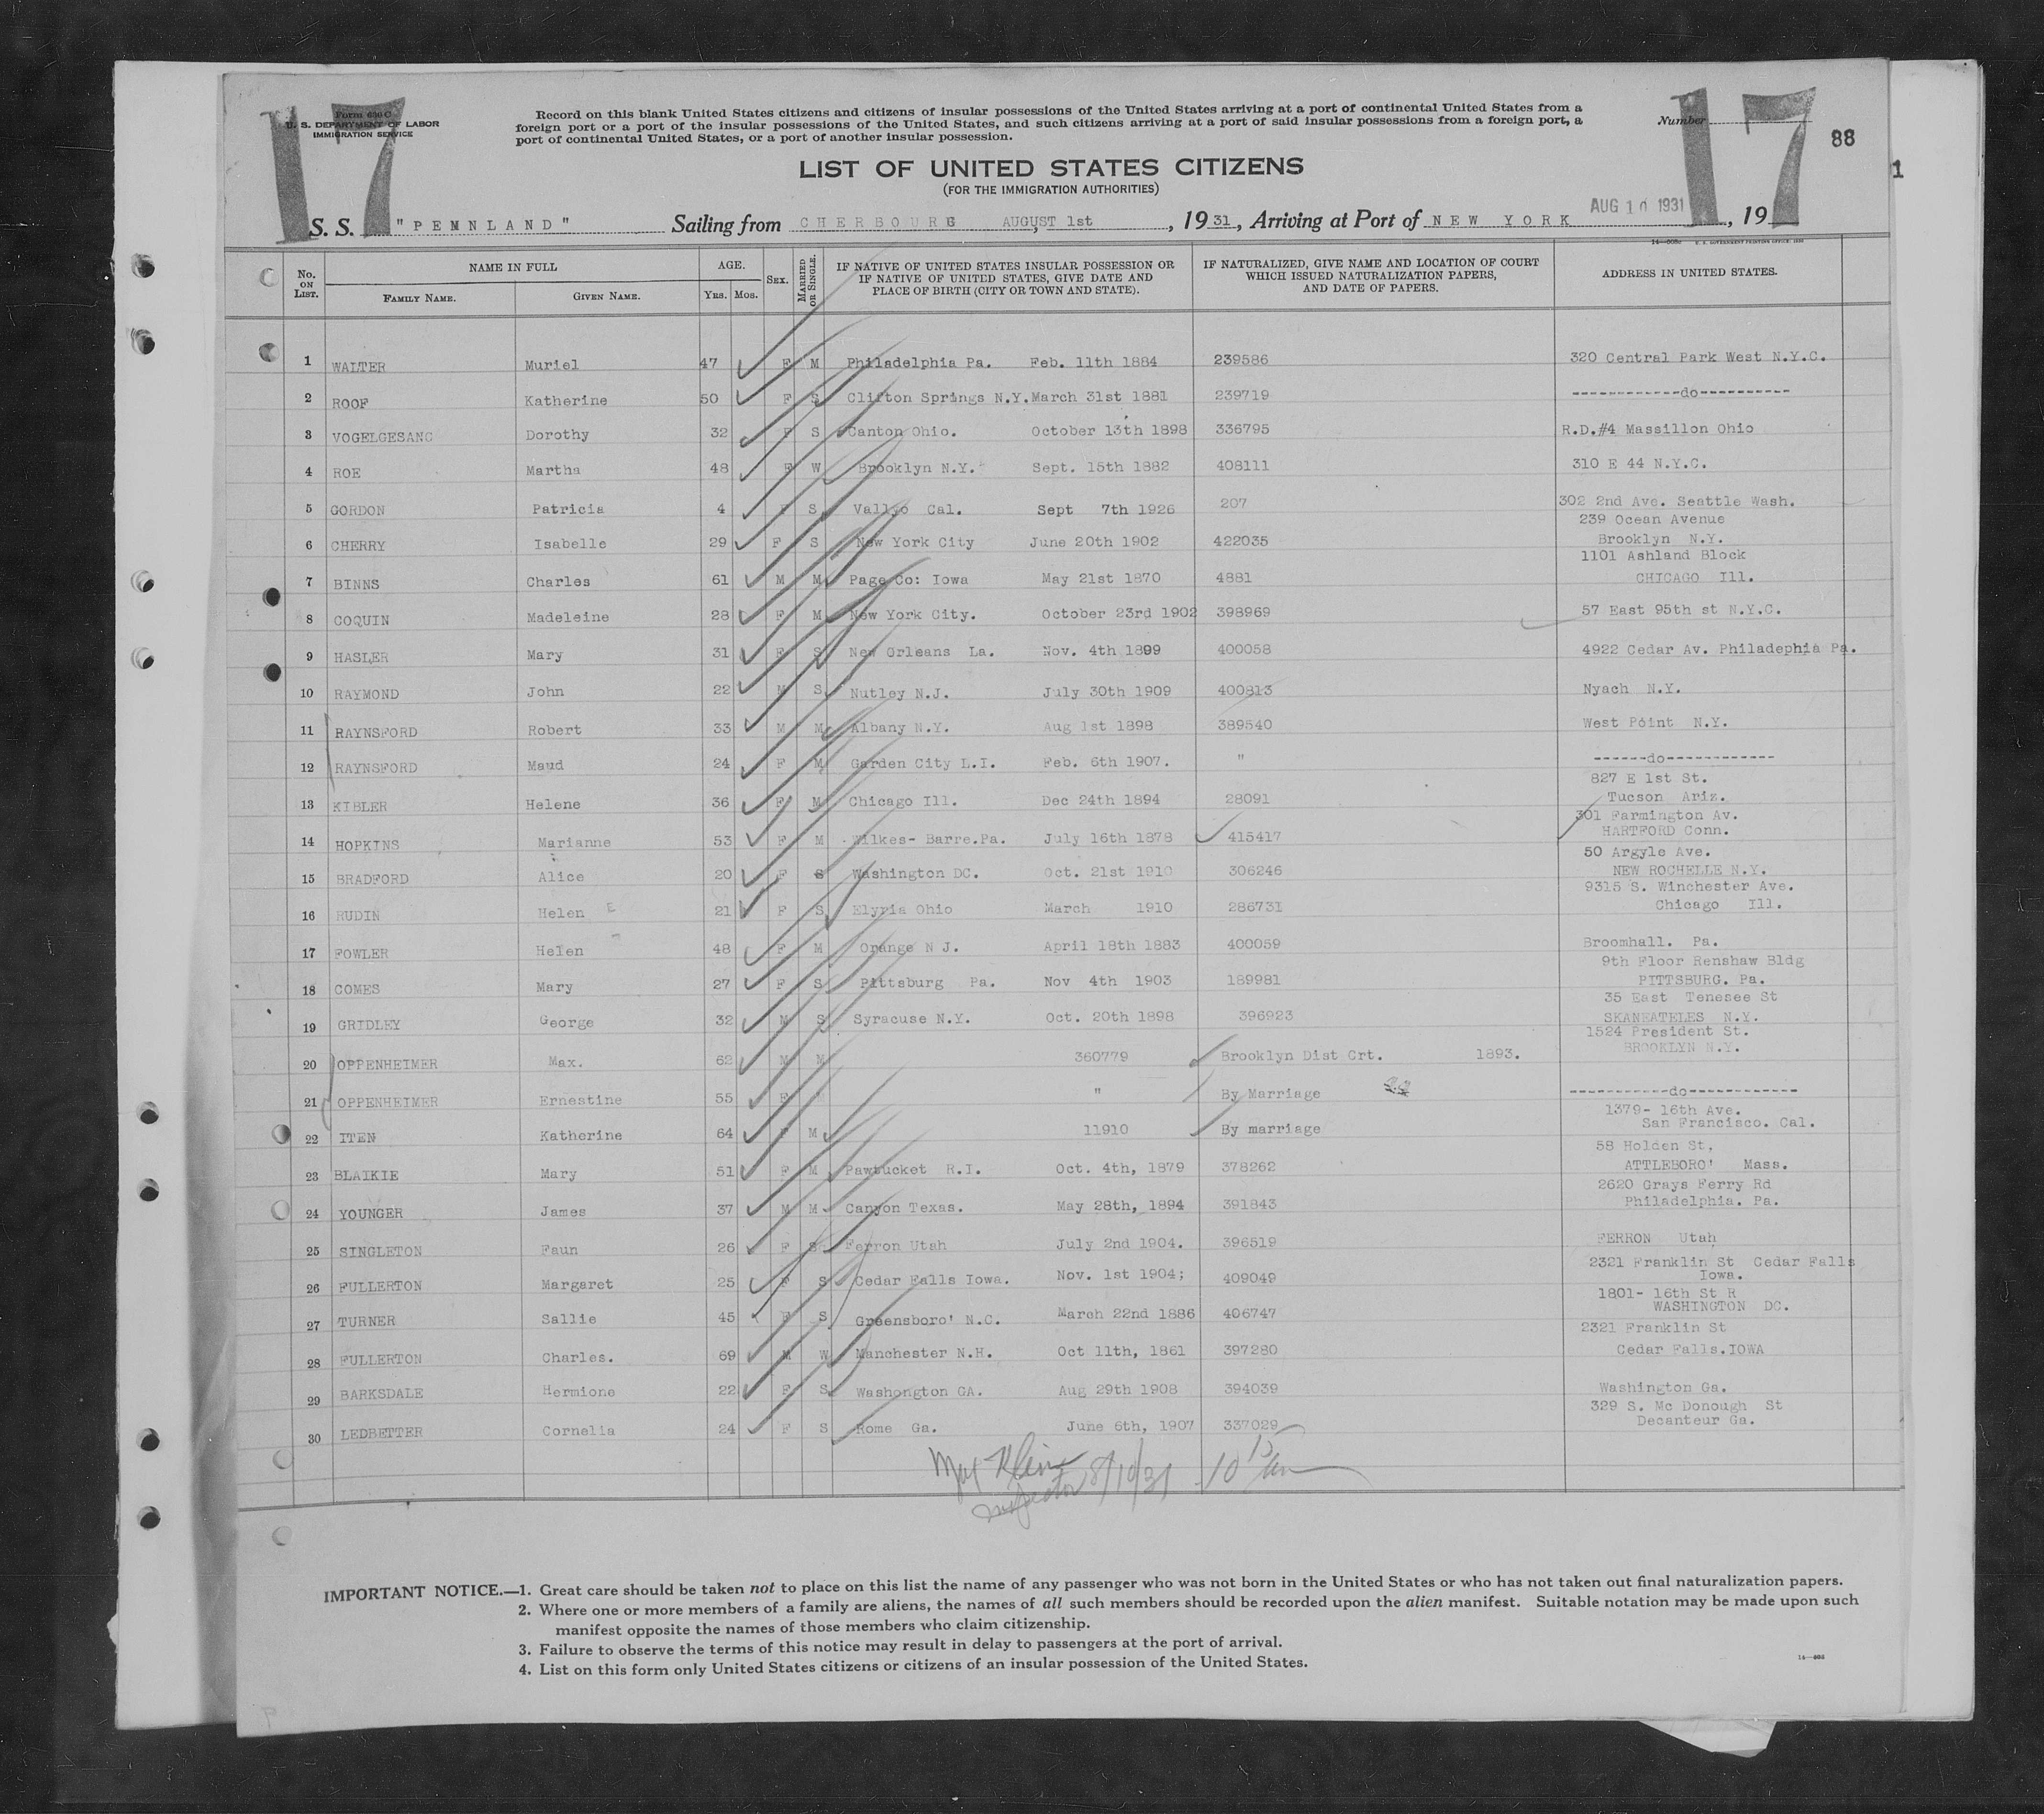 17
17
Form 630 C
U. S. DEPARTMENT OF LABOR
IMMIGRATION SERVICE
Record on this blank United States citizens and citizens of insular possessions of the United States arriving at a port of continental United States from a
foreign port or a port of the insular possessions of the United States, and such citizens arriving at a port of said insular possessions from a foreign port, a
port of continental United States, or a port of another insular possession.
Number
88
1
LIST OF UNITED STATES CITIZENS
(FOR THE IMMIGRATION AUTHORITIES)
S. S. "PENNLAND" Sailing from CHERBOURG AUGUST 1st, 1931, Arriving at Port of NEW YORK AUG 10 1931, 19
No. ON LIST. NAME IN FULL FAMILY NAME. GIVEN NAME. AGE. YRS. MOS. SEX. MARRIED OR SINGLE. IF NATIVE OF UNITED STATES INSULAR POSSESSION OR IF NATIVE OF UNITED STATES, GIVE DATE AND PLACE OF BIRTH (CITY OR TOWN AND STATE). IF NATURALIZED, GIVE NAME AND LOCATION OF COURT WHICH ISSUED NATURALIZATION PAPERS, AND DATE OF PAPERS. ADDRESS IN UNITED STATES.
1 WALTER Muriel 47 F M Philadelphia Pa. Feb. 11th 1884 239586 320 Central Park West N.Y.C.
2 ROOF Katherine 50 F S Clifton Springs N.Y. March 31st 1881 239719 ------------do----------
3 VOGELGESANG Dorothy 32 F S Canton Ohio. October 13th 1898 336795 R.D.#4 Massillon Ohio
4 ROE Martha 48 F W Brooklyn N.Y. Sept. 15th 1882 408111 310 E 44 N.Y.C.
5 GORDON Patricia 4 F S Valljo Cal. Sept 7th 1926 207 302 2nd Ave. Seattle Wash.
239 Ocean Avenue
6 CHERRY Isabelle 29 F S New York City June 20th 1902 422035 Brooklyn N.Y.
1101 Ashland Block
7 BINNS Charles 61 M M Page Co: Iowa May 21st 1870 4881 CHICAGO Ill.
8 COQUIN Madeleine 28 F M New York City. October 23rd 1902 398969 57 East 95th st N.Y.C.
9 HASLER Mary 31 F S New Orleans La. Nov. 4th 1899 400058 4922 Cedar Av. Philadephia Pa.
10 RAYMOND John 22 M S Nutley N.J. July 30th 1909 400813 Nyach N.Y.
11 RAYNSFORD Robert 33 M M Albany N.Y. Aug 1st 1898 389540 West Point N.Y.
12 RAYNSFORD Maud 24 F M Garden City L.I. Feb. 6th 1907. " ------do------------
827 E 1st St.
13 KIBLER Helene 36 F M Chicago Ill. Dec 24th 1894 28091 Tucson Ariz.
301 Farmington Av.
14 HOPKINS Marianne 53 F M Wilkes- Barre.Pa. July 16th 1878 415417 HARTFORD Conn.
50 Argyle Ave.
15 BRADFORD Alice 20 F S Washington DC. Oct. 21st 1910 306246 NEW ROCHELLE N.Y.
9315 S. Winchester Ave.
16 RUDIN Helen E 21 F S Elyria Ohio March 1910 286731 Chicago Ill.
17 FOWLER Helen 48 F M Orange N J. April 18th 1883 400059 Broomhall. Pa.
9th Floor Renshaw Bldg
18 COMES Mary 27 F S Pittsburg Pa. Nov 4th 1903 189981 PITTSBURG. Pa.
35 East Tenesee St
19 GRIDLEY George 32 M S Syracuse N.Y. Oct. 20th 1898 396923 SKANEATELES N.Y.
1524 President St.
20 OPPENHEIMER Max. 62 M M 360779 Brooklyn Dist Crt. 1893. BROOKLYN N.Y.
21 OPPENHEIMER Ernestine 55 F " By Marriage -----------do------------
1379- 16th Ave.
22 ITEN Katherine 64 F M 11910 By marriage San Francisco. Cal.
58 Holden St,
23 BLAIKIE Mary 51 F M Pawtucket R.I. Oct. 4th, 1879 378262 ATTLEBORO' Mass.
2620 Grays Ferry Rd
24 YOUNGER James 37 M M Canyon Texas. May 28th, 1894 391843 Philadelphia. Pa.
25 SINGLETON Faun 26 F S Ferron Utah July 2nd 1904. 396519 FERRON Utah
26 FULLERTON Margaret 25 F S Cedar Falls Iowa. Nov. 1st 1904; 409049 2321 Franklin St Cedar Falls
Iowa.
1801- 16th St R
27 TURNER Sallie 45 F S Greensboro' N.C. March 22nd 1886 406747 WASHINGTON DC.
2321 Franklin St
28 FULLERTON Charles. 69 M W Manchester N.H. Oct 11th, 1861 397280 Cedar Falls.IOWA
29 BARKSDALE Hermione 22 F S Washongton GA. Aug 29th 1908 394039 Washington Ga.
329 S. Mc Donough St
30 LEDBETTER Cornelia 24 F S Rome Ga. June 6th, 1907 337029 Decanteur Ga.
Max Klein 8/10/31 10 15 am
Inspector
IMPORTANT NOTICE.—1. Great care should be taken not to place on this list the name of any passenger who was not born in the United States or who has not taken out final naturalization papers.
2. Where one or more members of a family are aliens, the names of all such members should be recorded upon the alien manifest. Suitable notation may be made upon such
manifest opposite the names of those members who claim citizenship.
3. Failure to observe the terms of this notice may result in delay to passengers at the port of arrival.
4. List on this form only United States citizens or citizens of an insular possession of the United States.